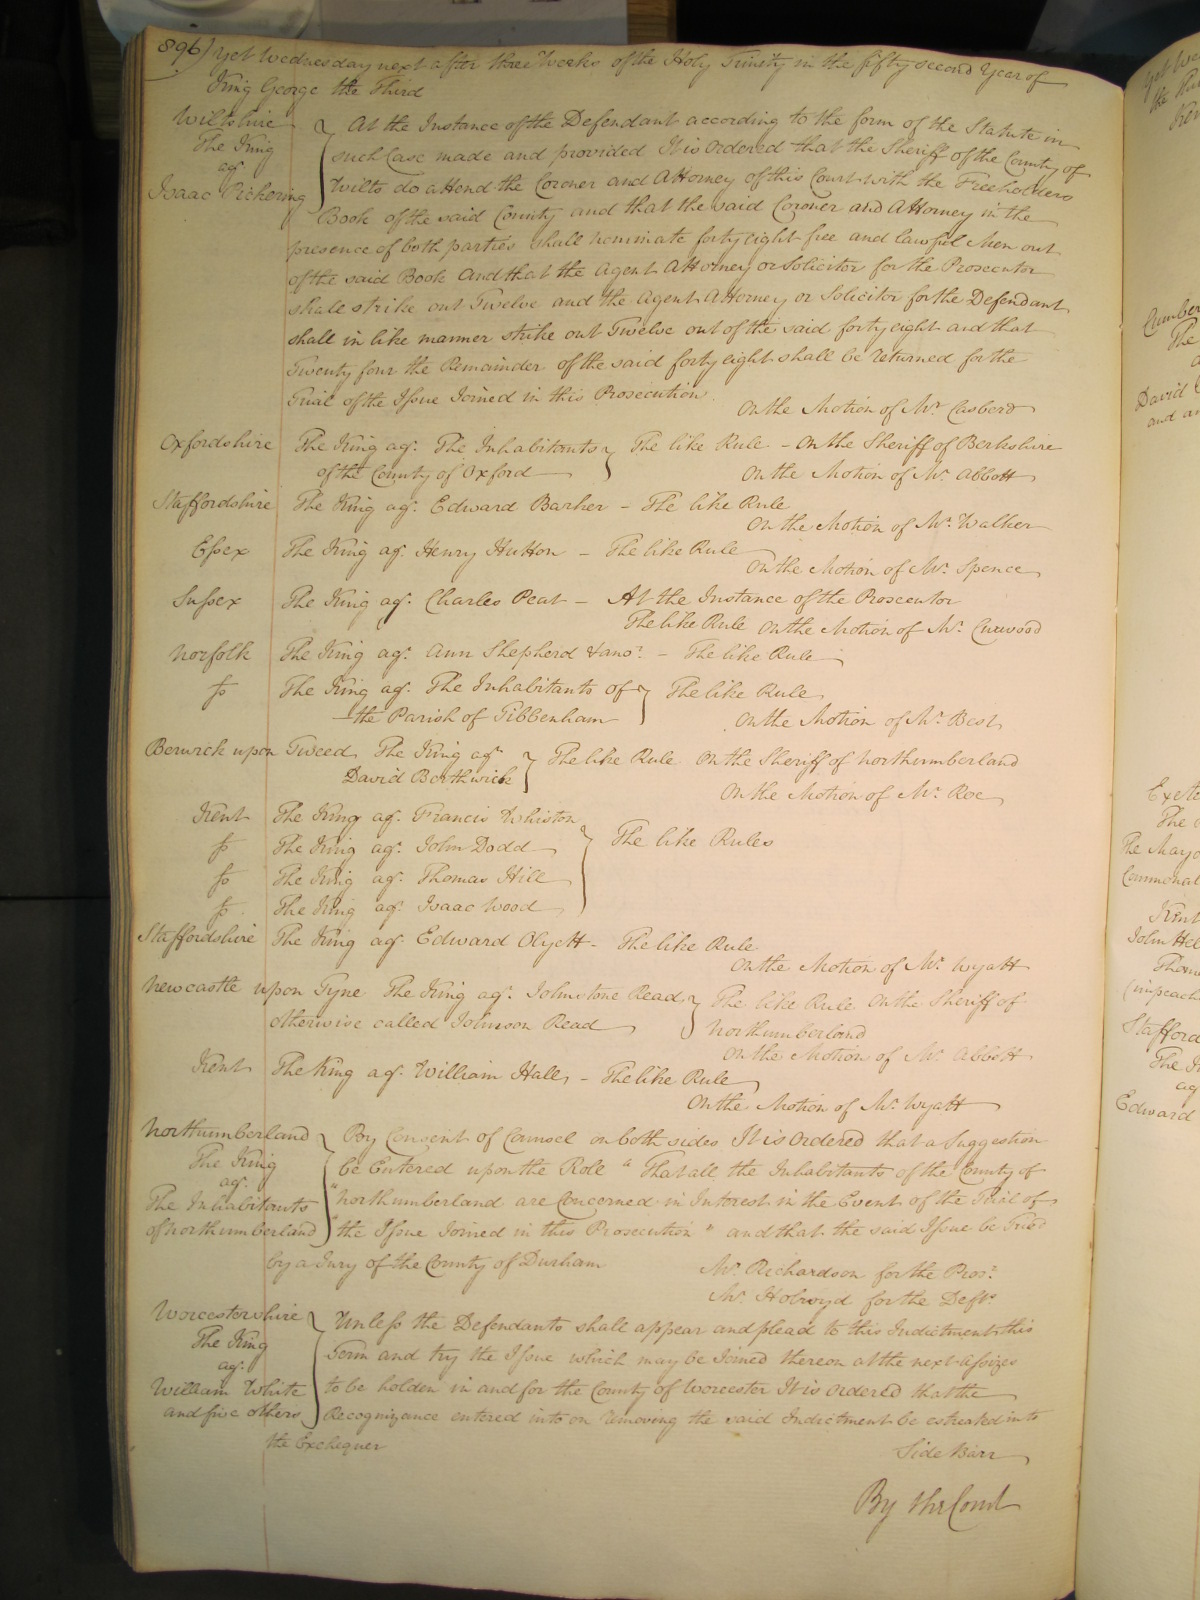 896) Yet Wednesday next after three Weeks of the Holy Trinity in the fifty second Year of
King George the Third
Wiltshire
The King
agt
Isaac Pickering
At the Instance of the Defendant according to the form of the Statute in
such Case made and provided It is Ordered that the Sheriff of the County of
Wilts do attend the Coroner and Attorney of this Court with the Freeholders
Book of the said County and that the said Coroner and Attorney in the
presence of both parties shall nominate forty eight free and lawful Men out
of the said Book and that the Agent Attorney or Solicitor for the Prosecutor
shall strike out Twelve and the Agent Attorney or Solicitor for the Defendant
shall in like manner strike out Twelve out of the said forty eight and that
Twenty four the Remainder of the said forty eight shall be returned for the
Trial of the Issue Joined in this Prosecution
On the Motion of Mr Casberd
Oxfordshire The King agt. The Inhabitants The like Rule - On the Sheriff of Berkshire
of the County of Oxford On the Motion of Mr. Abbott
Staffordshire The King agt. Edward Barker - The like Rule
On the Motion of Mr. Walker
Essex The King agt. Henry Hutton - The like Rule
On the Motion of Mr. Spence
Sussex The King agt. Charles Peat - At the Instance of the Prosecutor
The like Rule On the Motion of Mr. Curwood
Norfolk The King agt. Ann Shepherd & anor. - The like Rule
Do The King agt. The Inhabitants of The like Rule
the Parish of Tibbenham On the Motion of Mr. Best
Berwick upon Tweed The King agt The like Rule On the Sheriff of Northumberland
David Borthwick
On the Motion of Mr. Roe
Kent The King agt. Francis Whiston
Do The King agt. John Dodd The like Rules
Do The King agt. Thomas Hill
Do The King agt. Isaac Wood
Staffordshire The King agt. Edward Olyett - The like Rule
On the Motion of Mr. Wyatt
Newcastle upon Tyne The King agt. Johnstone Read The like Rule On the Sheriff of
otherwise called Johnson Read Northumberland
On the Motion of Mr. Abbott
Kent The King agt. William Hall - The like Rule
On the Motion of Mr. Wyatt
Northumberland
The King
agt.
The Inhabitants
of Northumberland
By Consent of Counsel on both sides It is Ordered that a Suggestion
be Entered upon the Roll "That all the Inhabitants of the County of
"Northumberland are Concerned in Interest in the Event of the Trial of
"the Issue Joined in this Prosecution" and that the said Issue be Tried
by a Jury of the County of Durham
Mr. Richardson for the Pros.r
Mr. Holroyd for the Defts.
Worcestershire
The King
agt.
William White
and five others
Unless the Defendants shall appear and plead to this Indictment this
Term and try the Issue which may be Joined thereon at the next Assizes
to be holden in and for the County of Worcester It is Ordered that the
Recognizance entered into on removing the said Indictment be estreated into
the Exchequer
Side Barr
By the Court